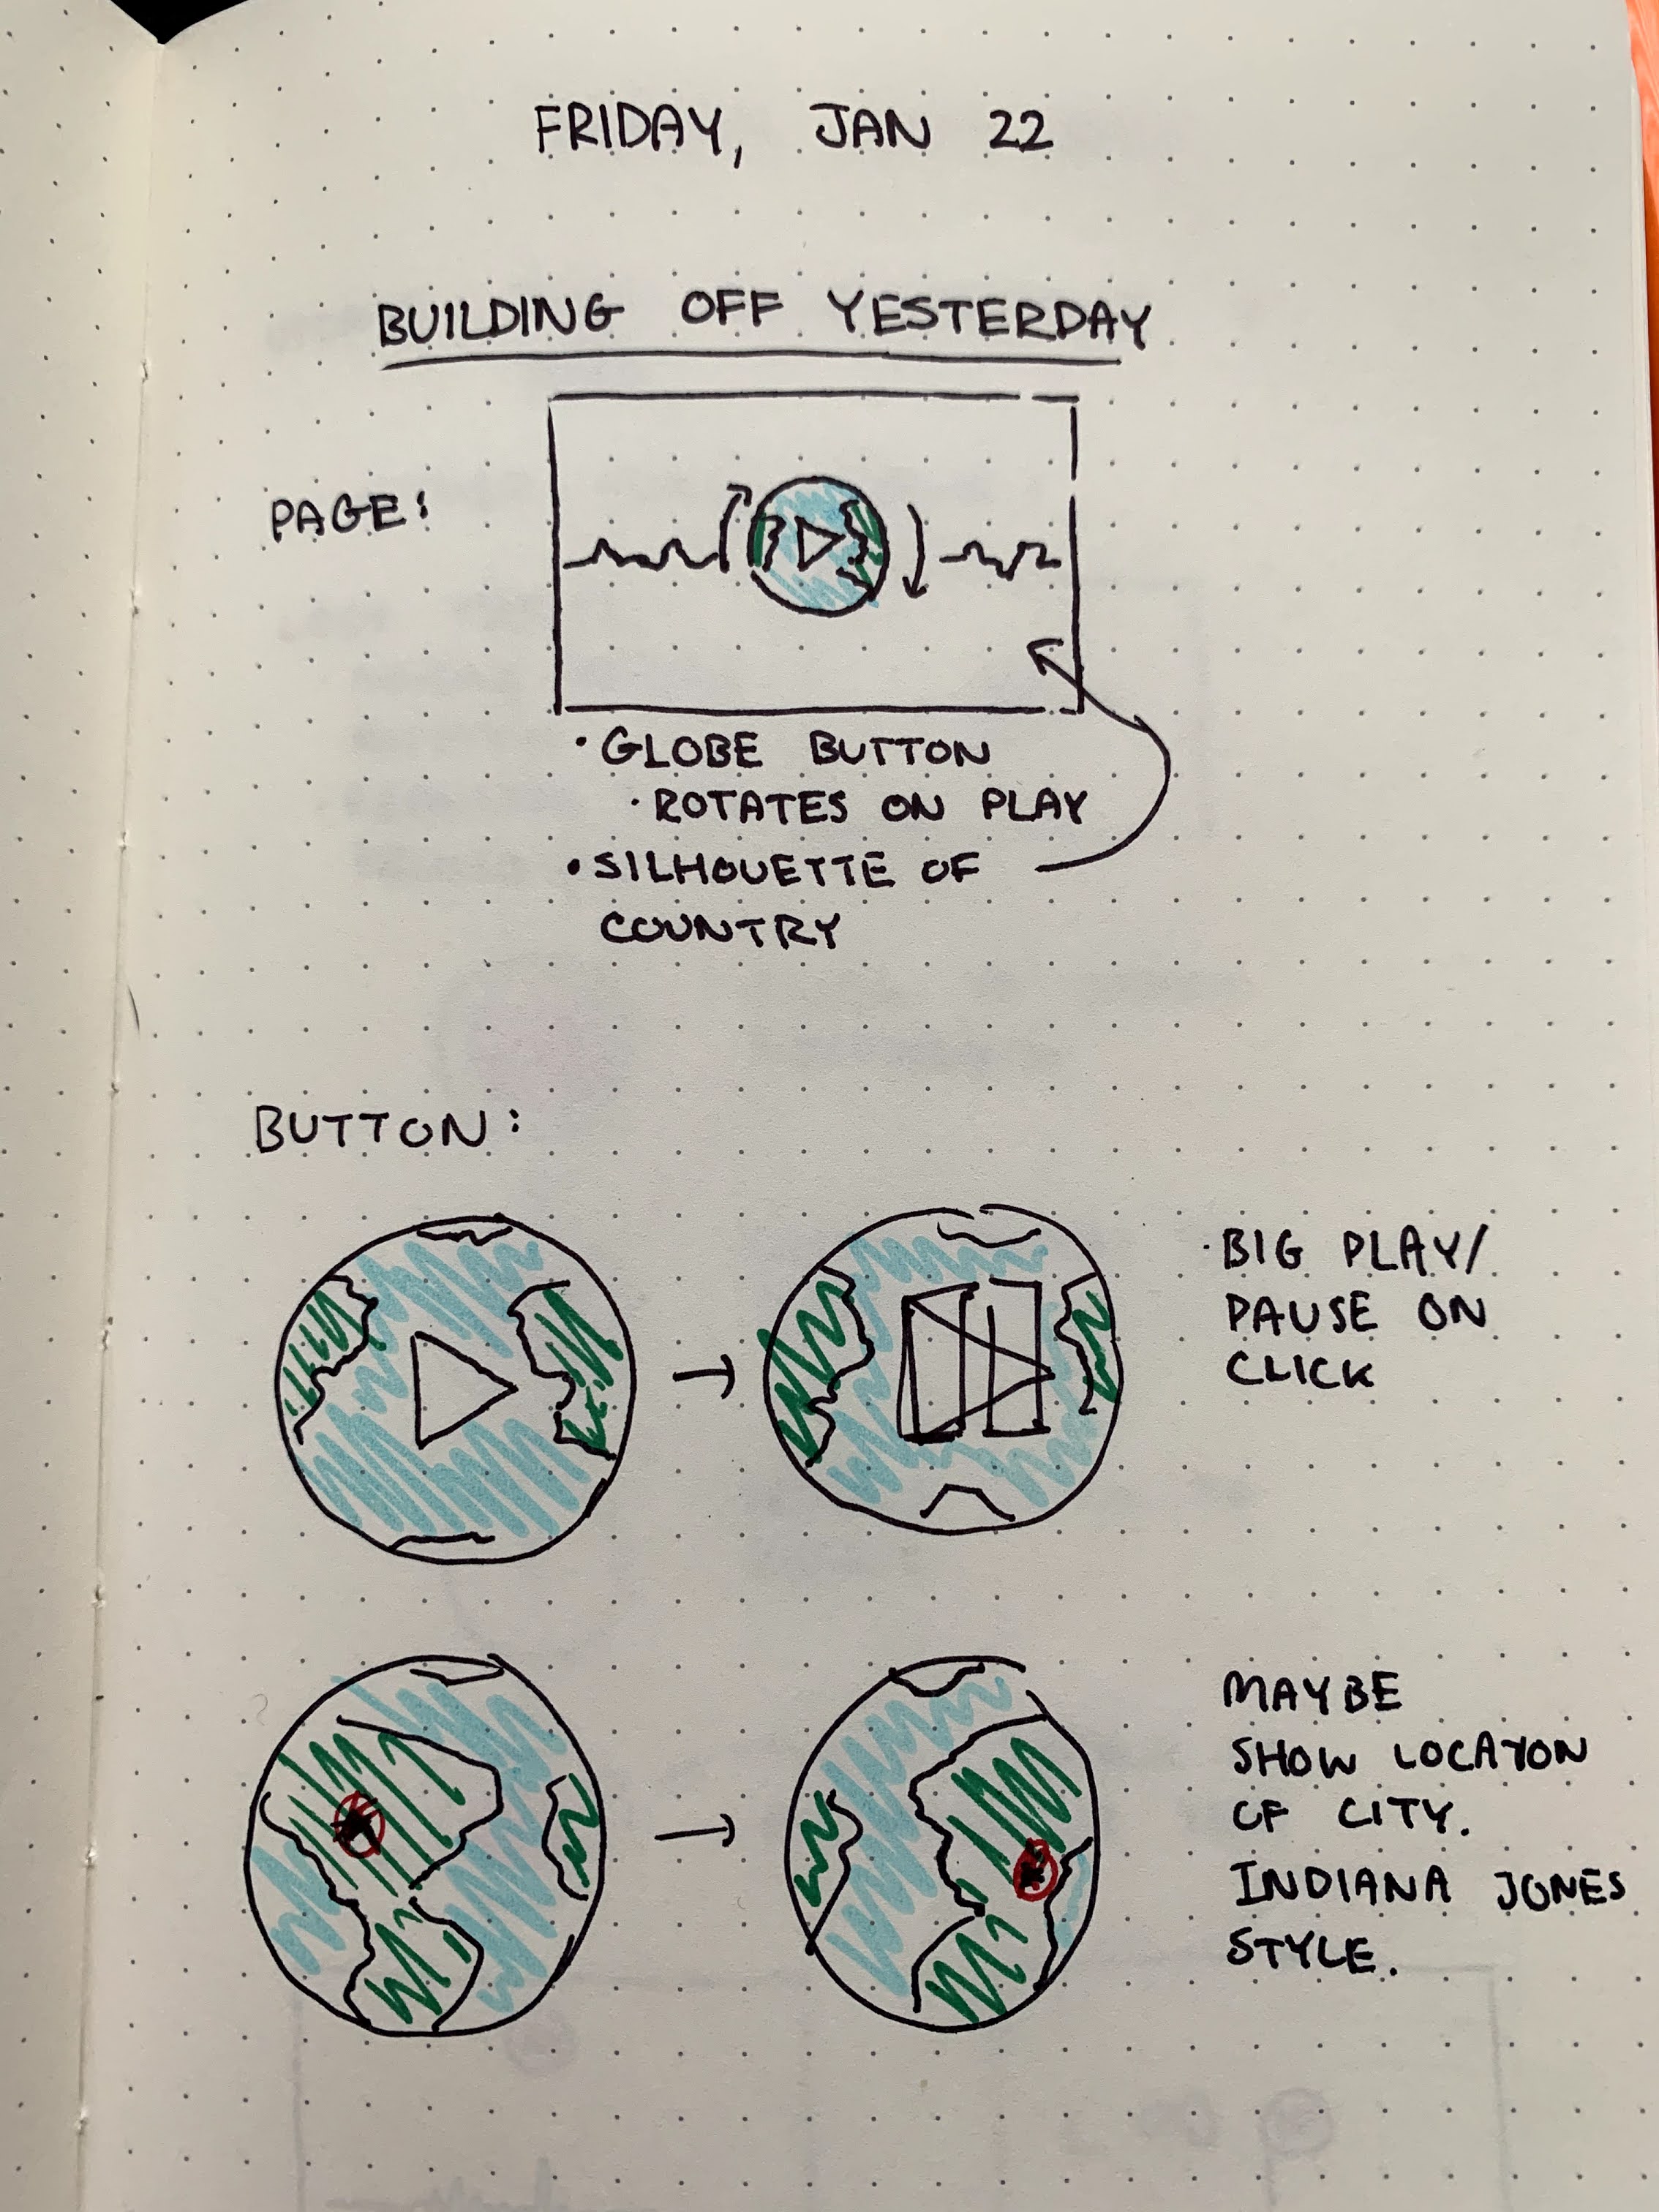 FRIDAY, JAN 22
BUILDING OFF YESTERDAY
PAGE:
• GLOBE BUTTON
• ROTATES ON PLAY
• SILHOUETTE OF
COUNTRY
BUTTON:
• BIG PLAY/
PAUSE ON
CLICK
MAYBE
SHOW LOCATION
OF CITY.
INDIANA JONES
STYLE.